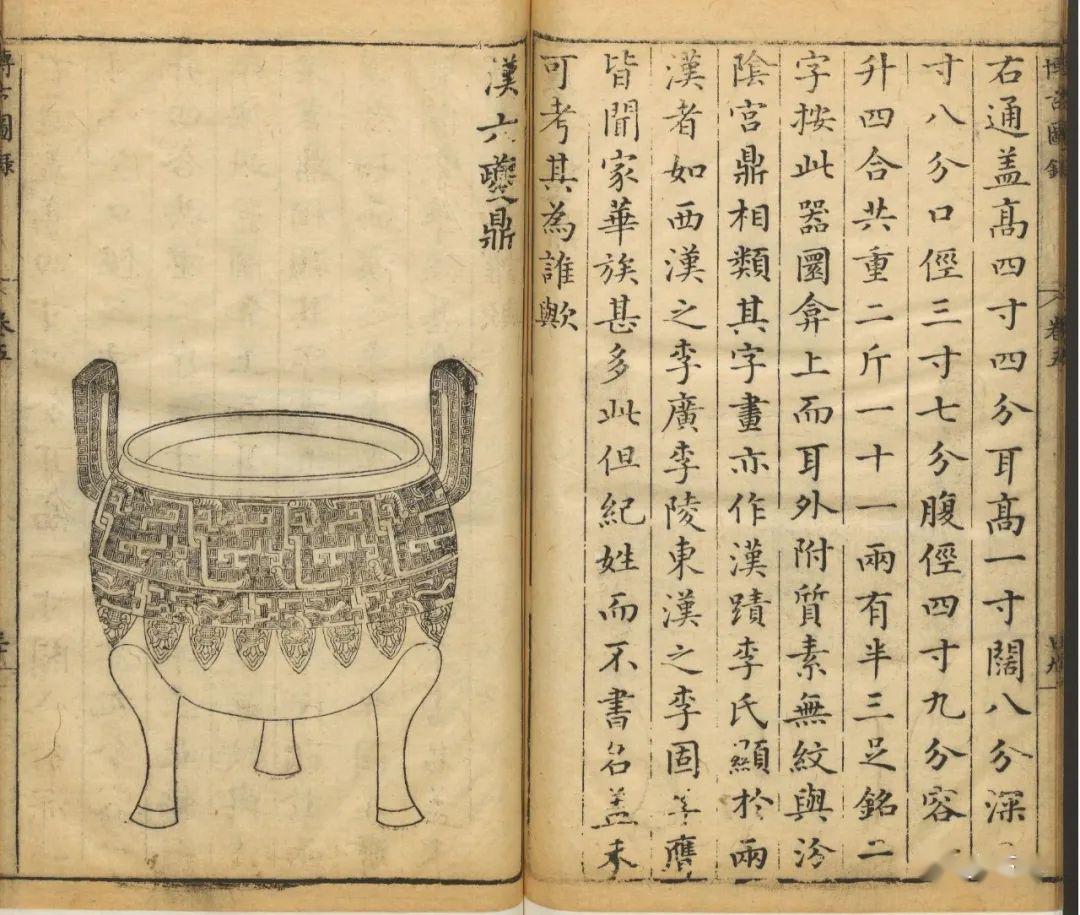 右通盖髙四寸四分耳髙一寸闊八分深
寸八分口徑三寸七分腹徑四寸九分容
升四合共重二斤一十一兩有半三足銘二
字按此器圜弇上而耳外附質素無紋與汾
陰宫鼎相類其字畫亦作漢蹟李氏顯於兩
漢者如西漢之李廣李陵東漢之李固李膺
皆聞家華族甚多此但紀姓而不書名盖未
可考其為誰歟
漢六夔鼎
博古圖録
卷五
博古圖録
卷五